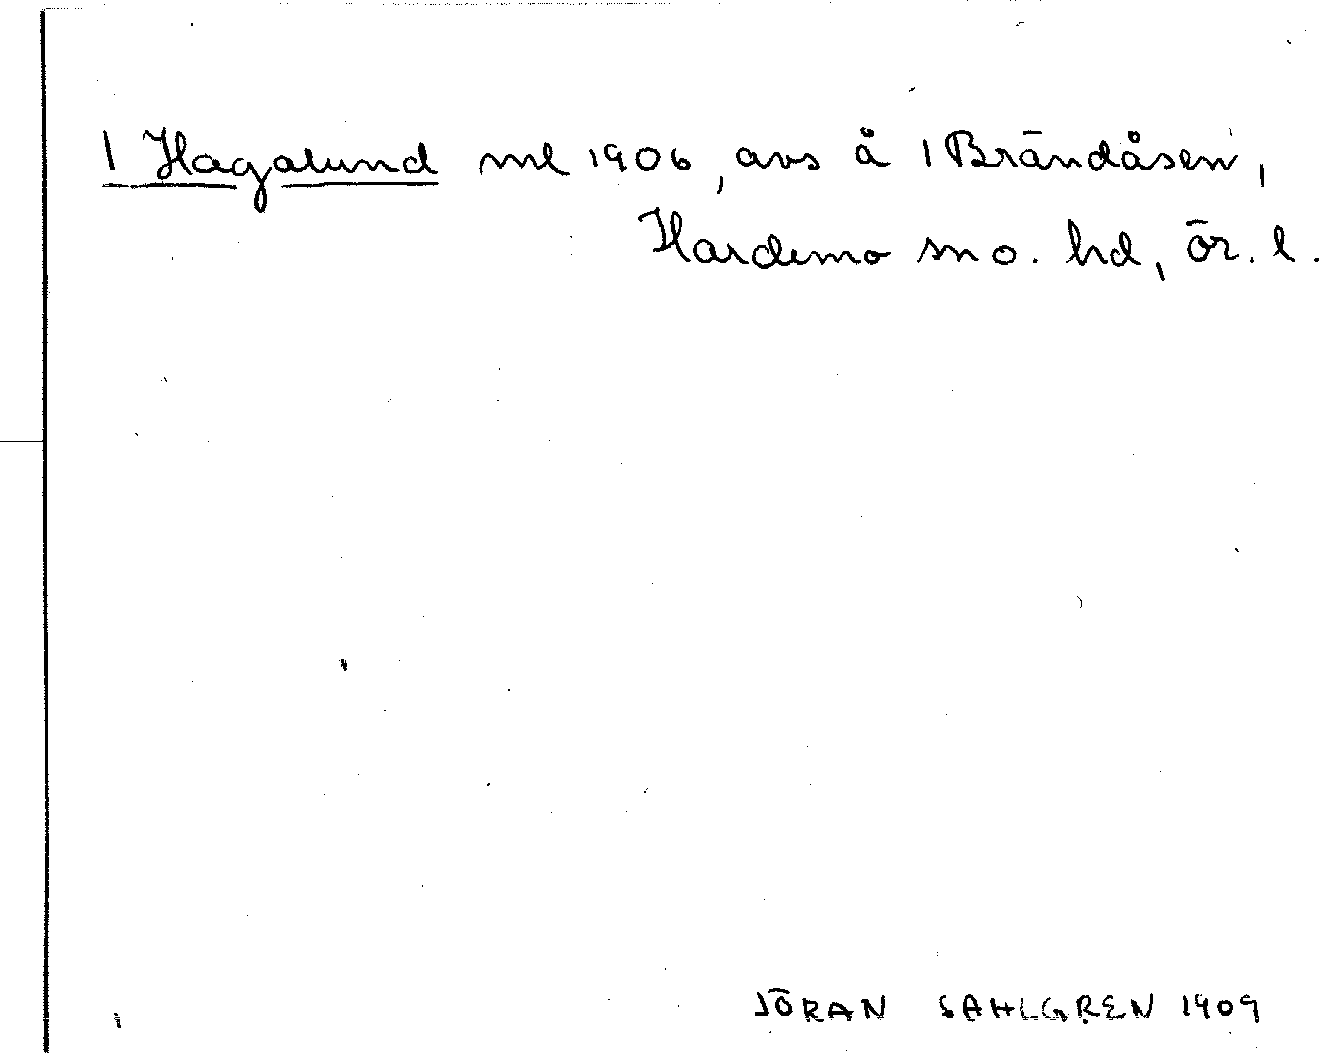 1 Hagalund ml 1906, avs å 1 Brändåsen,
Hardemo sn o. hd, ör. l.
JÖRAN SAHLGREN 1909